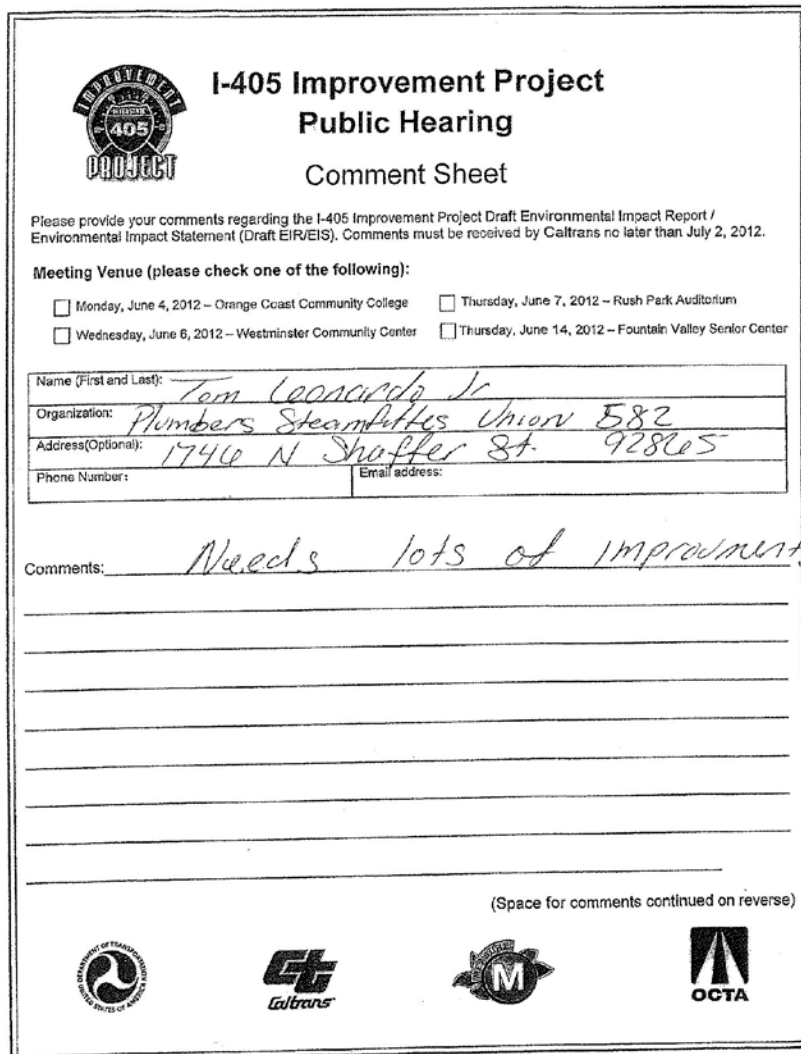 IMPROVEMENT
INTERSTATE
405
PROJECT
I-405 Improvement Project
Public Hearing
Comment Sheet
Please provide your comments regarding the I-405 Improvement Project Draft Environmental Impact Report /
Environmental Impact Statement (Draft EIR/EIS). Comments must be received by Caltrans no later than July 2, 2012.
Meeting Venue (please check one of the following):
Monday, June 4, 2012 – Orange Coast Community College
Thursday, June 7, 2012 – Rush Park Auditorium
Wednesday, June 6, 2012 – Westminster Community Center
Thursday, June 14, 2012 – Fountain Valley Senior Center
Name (First and Last): Tom Leonardo Jr
Organization: Plumbers Steamfittes Union 582
Address(Optional): 1746 N Shaffer St. 92865
Phone Number:
Email address:
Comments: Needs lots of improvment
(Space for comments continued on reverse)
DEPARTMENT OF TRANSPORTATION
UNITED STATES OF AMERICA
Caltrans
M
OCTA